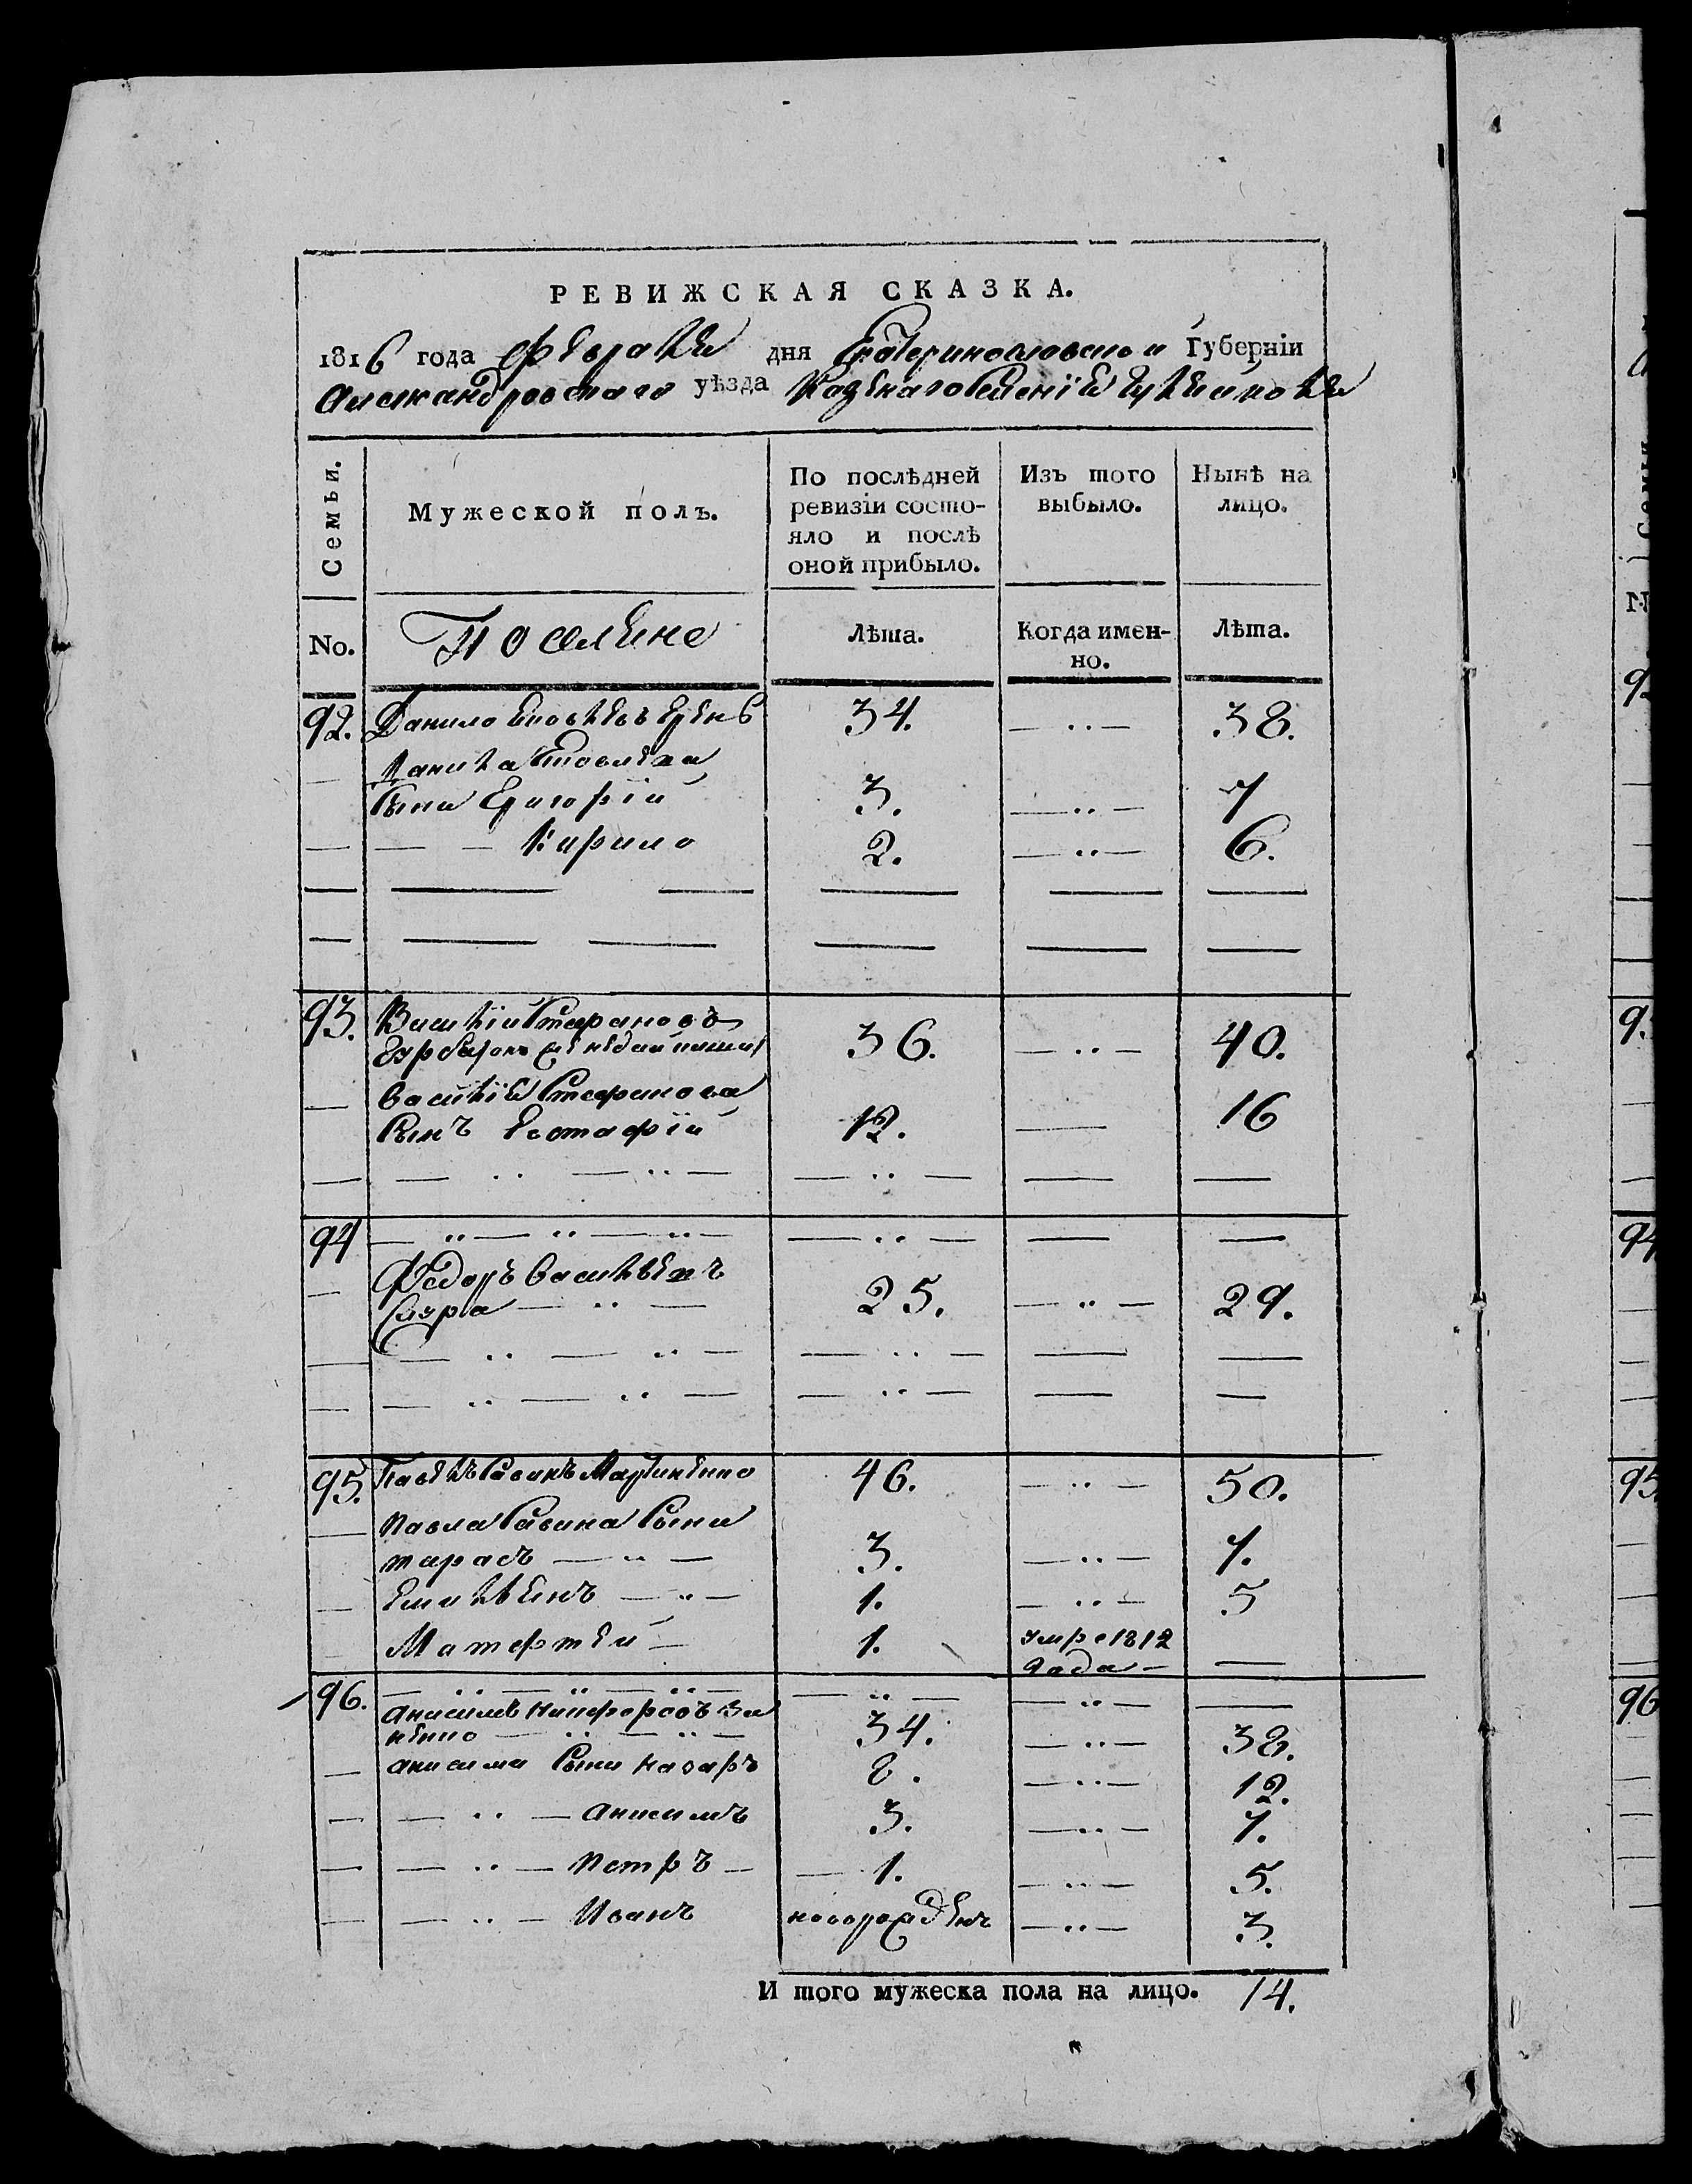 РЕВИЖСКАЯ СКАЗКА.
1816 года Февраля дня Екатеринославской Губерніи
Александровского уѣзда Казенаго селенія
Семьи.
Мужеской полъ.
По послѣдней ревизіи состо-
яло и послѣ
оной прибыло.
Изъ того
выбыло.
Нынѣ на
лицо.
No.
Поселяне
Лѣта.
Когда имен-
но.
Лѣта.
92. Данило 34. 38.
Данила
сыни Григорій 3. 7
Кирило 2. 6.
93. Василій Стефановъ
36. 40.
Василія Стефанова
сынъ Евстафій 12. 16
94
Федоръ Васильевъ
25. 29.
95. Павелъ Савинъ Мартиненко 46. 50.
Павла Савина сыни
тарасъ 3. 7.
Емильянъ 1. 5
Матфтей 1. умре 1812
года
96.
Анисимъ Никифоровъ Зи
ненко 34. 38.
Анисима сыни Назаръ 8. 12.
Анисимъ 3. 7.
Петръ 1. 5.
Иванъ новорожденъ 3.
И того мужеска пола на лицо. 14.